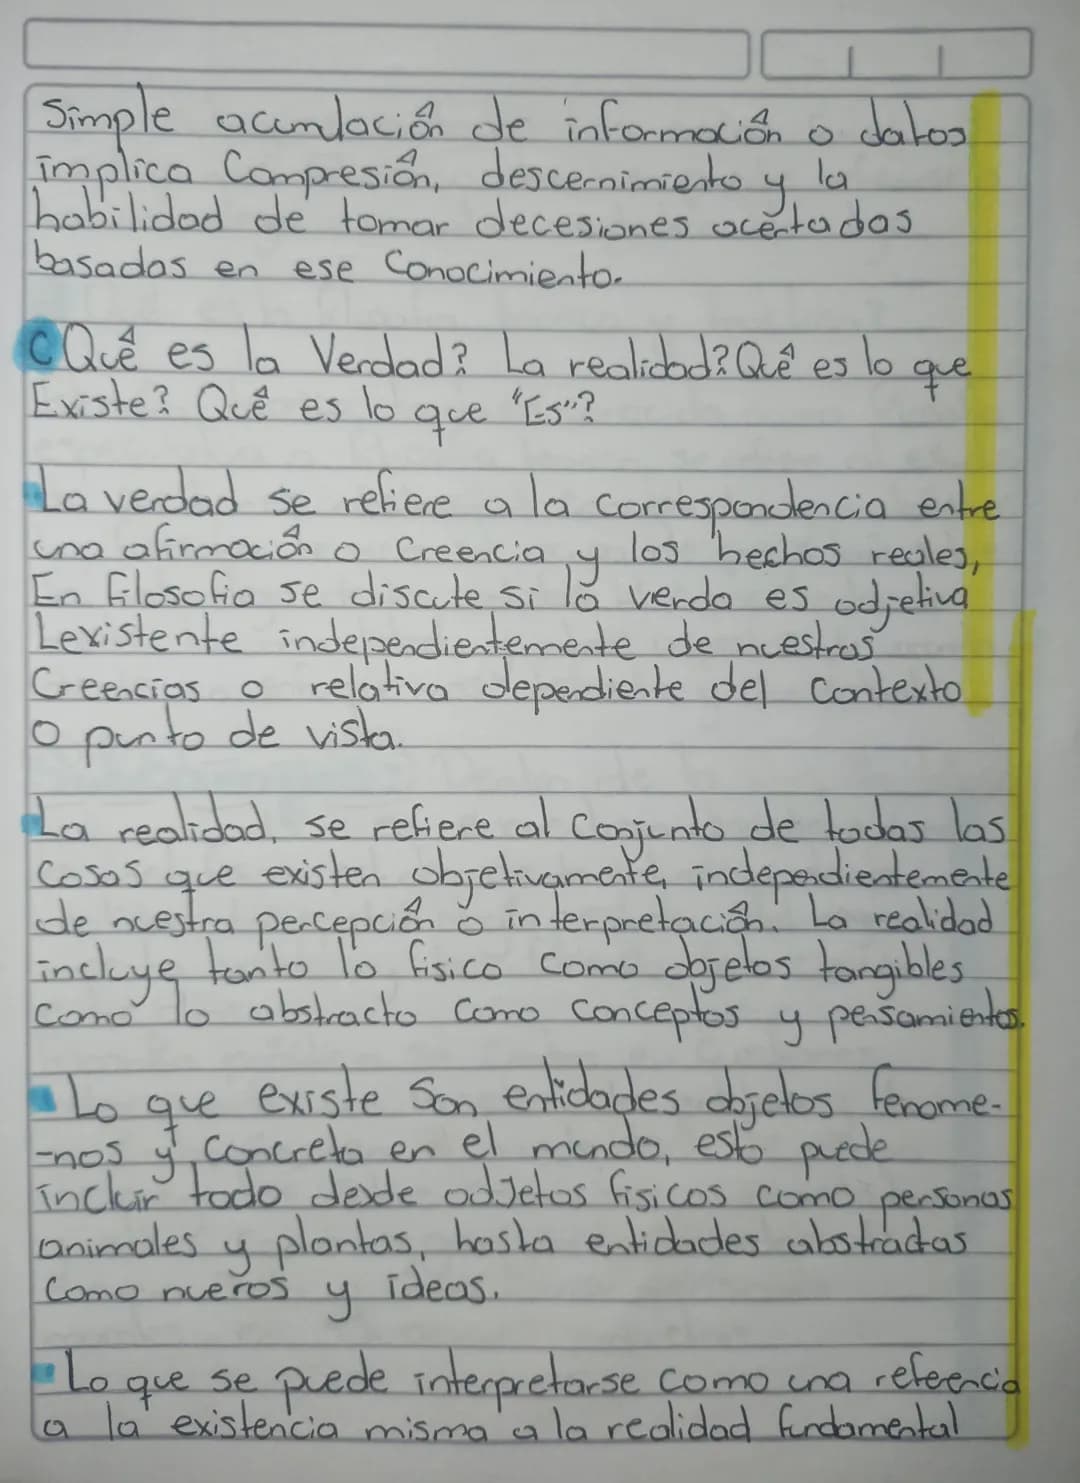 Simple acumlación de información o datos
implica Compresión, descernimiento y la
habilidad de tomar decesiones acertadas
basadas en ese Conocimiento.
C Qué es la Verdad? La realidad? Qué es lo que
Existe? Qué es lo que "Es"?
La verdad se refiere a la correspondencia entre
una afirmación o Creencia y los hechos reales,
En filosofia se discute si la verda es odjetiva
Lexistente independientemente de nuestras
Creencias o relativa dependiente del contexto
o punto de vista.
La realidad, se refiere al Conjunto de todas las
Cosas que existen objetivamente, independientemente
de nuestra percepción o interpretación. La realidad
incluye tanto lo fisico como objetos tangibles
como lo abstracto como conceptos y pensamientos.
Lo que existe Son entidades objetos fenome-
-nos y Concreta en el mundo, esto puede
incluir todo desde odjetos fisicos como personas
animales y plantas, hasta entidades abstractas
Como nueros y ideas.
Lo que se puede interpretarse como una refeencia
a la existencia misma a la realidad fundamental